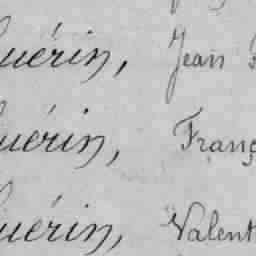 uérin, Jean
uérin, Franç
uérin, Valent